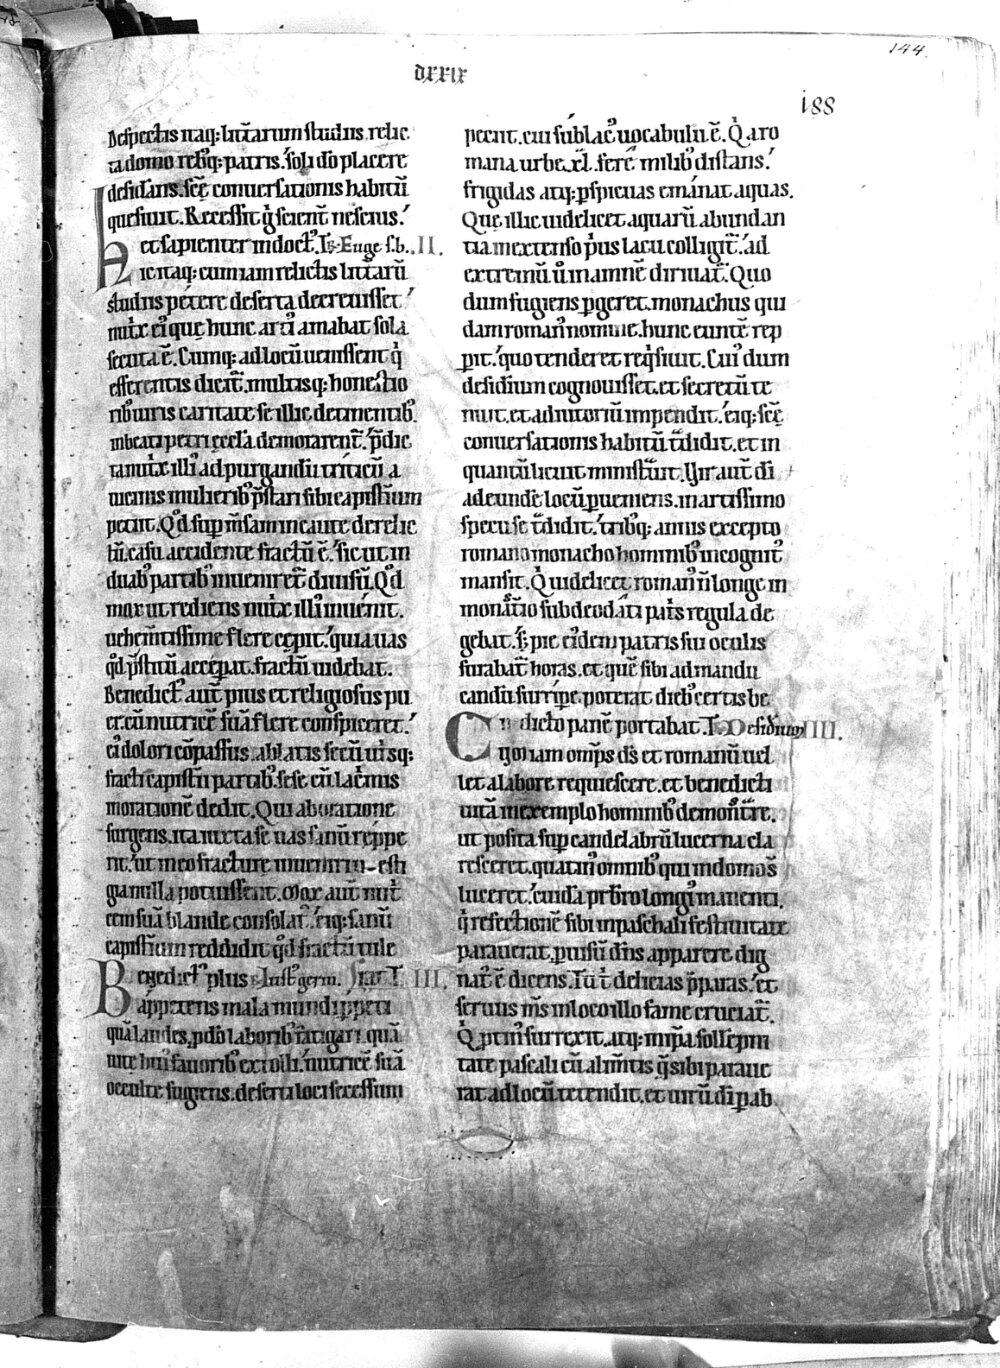 144.
dxxix
188
Despectis itaq; litt̄arum studiis. relic
ta domo reb;q; patris. soli d̄o placere
desid̄ans. sc̄ę conuersationis habitū
quesiuit. Recessit g̊ scient̄ nescius.
et sapienter indoct᷒. II.
Hic itaq; cum iam relictis litt̄arū
studiis petere deserta decreuisset.
nut̄x ei que hunc arti᷒ amabat sola
secuta ē. Cumq; ad locū uenissent q̇
efferentis dicit᷑. multisq; honestio
rib᷒ uiris caritate se illic detinentib᷒.
in beati petri ęccl̄a demorarent᷑. p̄dic
ta nut̄x illi᷒ ad purgandū triticū a
uicinis mulierib᷒ p̄stari sibi capist̄ium
petiit. Qd̄ sup m̄sam incaute derelic
tū. casu accidente fractū ē. sic ut in
duab᷒ partib᷒ inueniret᷑ diuisū. Qd̄
mox ut rediens nut̄x illi᷒ inuenit.
uehem̄tissime flere cępit. quia uas
qd̄ p̄stitū acceperat. fractū uidebat.
Benedict᷒ aut̄ pius et religiosus pu
er. cū nutricē suā flere conspiceret.
ei᷒ dolori cōpassus. ablatis secū utrisq;
fracti capist̄ii partib᷒. sese cū lac̄mis
in orationē dedit. Qui ab oratione
surgens. ita iuxta se uas sanū reppe
rit. ut in eo fracture inueniri uesti
gia nulla potuissent. Mox aut̄ nut̄
cem suā blande consolat᷒. eiq; sanū
capist̄ium reddidit qd̄ fractū tule
rat. III.
Benedict᷒ plus
appetens mala mundi ppeti
quā laudes. p d̄o laborib᷒ fatigari. quā
uite hui᷒ fauorib᷒ extolli. nutricē suā
occulte fugiens. deserti loci secessum
petiit. cui sublac᷒ uocabulū ē. Qi a ro
mana urbe .xl. ferē milib᷒ distans.
frigidas atq; pspicuas emanat aquas.
Quę illic uidelicet aquarū abundan
tia in extenso prius lacu colligit᷑. ad
extremū u̇ in amnē diriuat᷑. Quo
dum fugiens pgeret. monachus qui
dam roman᷒ nomine. hunc euntē rep
pit. quo tenderet req̇siuit. Cui᷒ dum
desidium cognouisset. et secretū te
nuit. et adiutoriū impendit. eiq; sc̄ę
conuersationis habitū t̄didit. et in
quantū licuit minist̄uit. Vir aut̄ di
ad eundē locū pueniens. in artissimo
specu se t̄didit. trib;q; annis excepto
romano monacho hominib᷒ incognit᷒
mansit. Qi uidelicet roman᷒ n̄ longe in
monast̄io sub deodati pat̄s regula de
gebat. s; pie ei᷒dem patris sui oculis
furabat᷑ horas. et quē sibi ad mandu
candū surripe poterat dieb᷒ certis be
nedicto panē portabat. IIII.
Cū
q̇ iam omps d̄s et romanū uel
let a labore requiescere. et benedicti
uitā in exemplo hominib᷒ demonst̄re.
ut posita sup candelabrū lucerna cla
resceret. quatin᷒ omnib᷒ qui in domo s̄
luceret. cuidā prb̄ro longi᷒ manenti.
q̇ refectionē sibi in paschali festiuitate
parauerat. p uisū d̄ns apparere dig
nat᷒ ē dicens. Tu t̄ delicias pparas. et
seruus m̄s in loco illo fame cruciat᷑.
Qi ptin᷒ surrexit. atq; in ip̄a sollepni
tate pascali cū alim̄tis q̄ sibi paraue
rat ad locū tetendit. et uirū di p ab